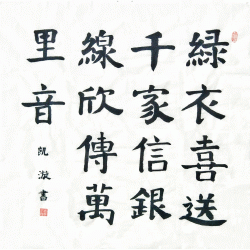 綠衣喜送
千家信銀
線欣傳萬
里音
阮漩書